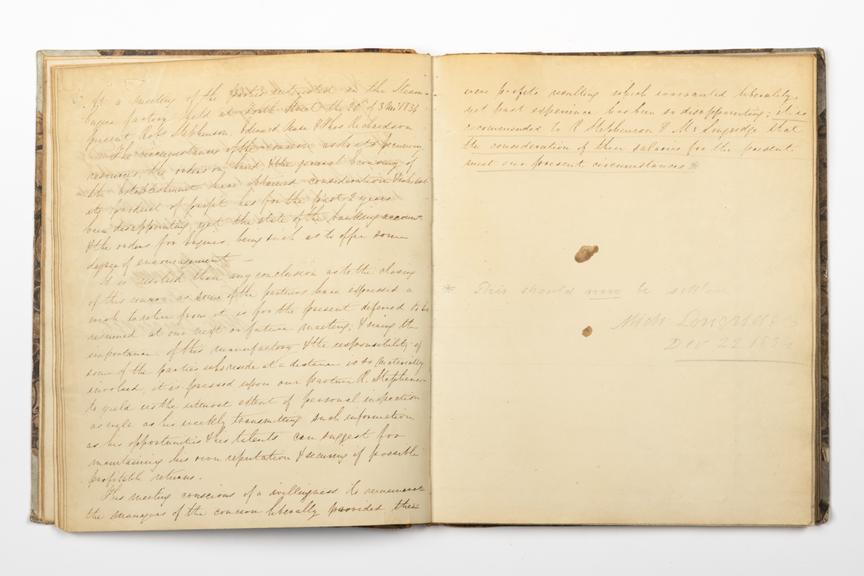 At a meeting of the parties interested in the Steam
Engine factory held at South Street the 20 of 3 Mo 1834
present Robt Stephenson Edward Pease & Thos Richardson
The circumstances of the concern as to its pecuniary
resources, the orders on hand & the general economy of
the establishment have obtained consideration & that
its product of profit has for the past 2 years
been disappointing yet the state of the banking account
& the orders for Engines being such as to offer some
degree of encouragement —
It is resolved that any conclusion as to the closing
of this concern as some of the partners have expressed a
wish to retire from it is for the present deferred to be
resumed at our next or future meeting, & seeing the
importance of this manufactory & the responsibility of
some of the parties who reside at a distance is so materially
involved, it is pressed upon our partner R. Stephenson
to yield us the utmost extent of personal inspection
as well as his weekly transmitting such information
as his opportunities & his talents can suggest for
maintaining his own reputation & securing if possible
profitable returns.
This meeting conscious of a willingness to remunerate
the managers of the concern liberally provided there
were profits resulting which warranted liberality,
but past experience has been so disappointing; it is
recommended to R Stephenson & Mr Longridge that
the consideration of their salaries for the present
meet our present circumstances *
* This should now be settled
Mich Longridge
Dec 22 1834